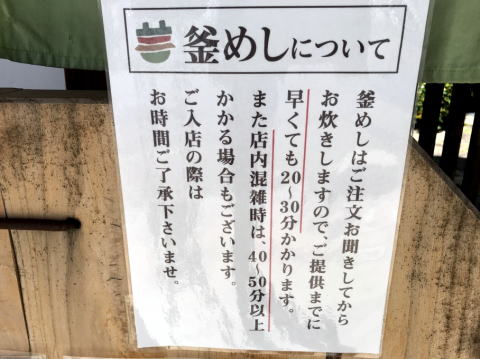 釜めしについて
釜めしはご注文お聞きしてから
お炊きしますので、ご提供までに
早くても20〜30分かかります。
また店内混雑時は、40〜50分以上
かかる場合もございます。
ご入店の際は
お時間ご了承下さいませ。